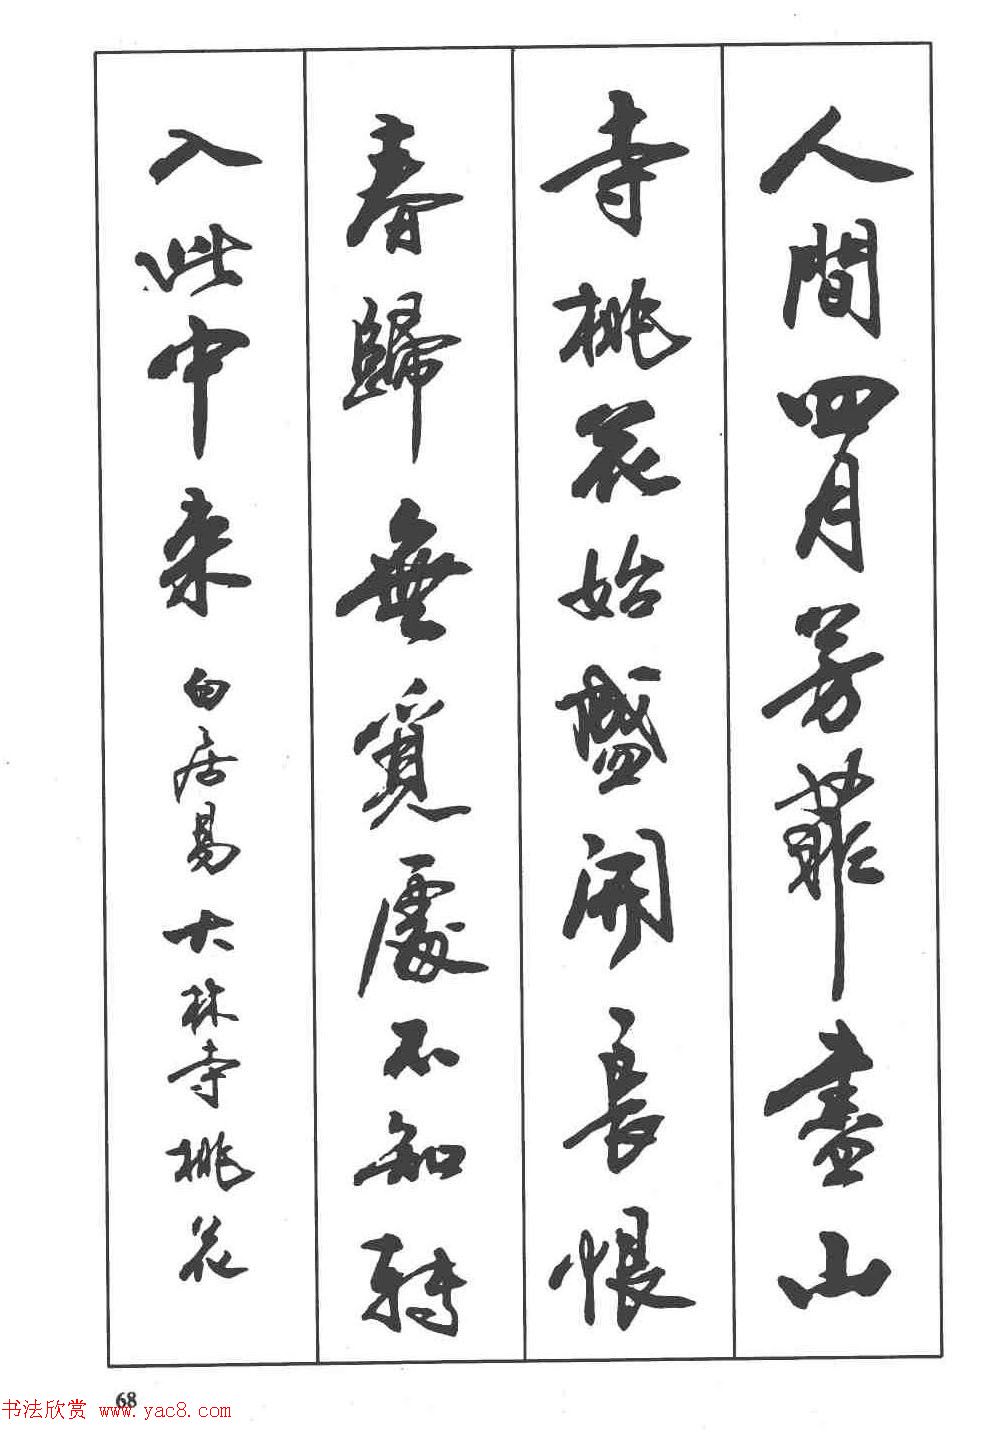 人間四月芳菲盡山
寺桃花始盛開長恨
春歸無覓處不知轉
入此中来 白居易大林寺桃花
68
书法欣赏 www.yac8.com